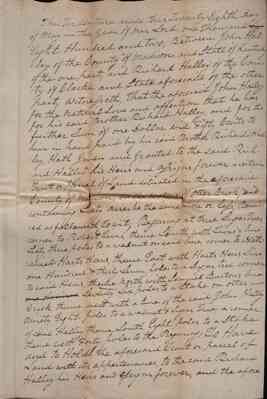 This Indenture made this twenty Eighth day
of May in the year of our Lord one thousand
Eight Hundred and two, Between John Hal
ley of the County of Madison and State of Kentucky
of the one part and Richard Halley of the Coun
ty of Clarke and State aforesaid of the other
part, Witnesseth, That the aforesaid John Halley
for the Natural love and affection that he has
for his said Brother Richard Halley and for the
further sum of one Dollar and Fifty Cents to
him in hand paid by his said Brother Richard Hal
ley Hath Given and Granted to the said Rich
ard Halley his Heirs and assigns forever a certain
Tract or Parcel of Land situated in the aforesaid
County of
containing acres be the same more or less Bound
ed as followeth to wit, Beginning at three
corner to thence South with line
poles to a
Harts corner, thence East with Harts line
One Hundred & thirty Seven poles to a
to said thence North with
poles to a Stake on otter
Creek thence West with a line of the said John Halley
Ninety Eight poles to a walnut & two corner
of said Halley thence South Eight poles to a Stake
thence West Forty poles to the Beginning, To Have
and to Hold the aforesaid Tract or parcel of
Land with its appurtenances to the said Richard
Halley his Heirs and assigns forever, and the afore